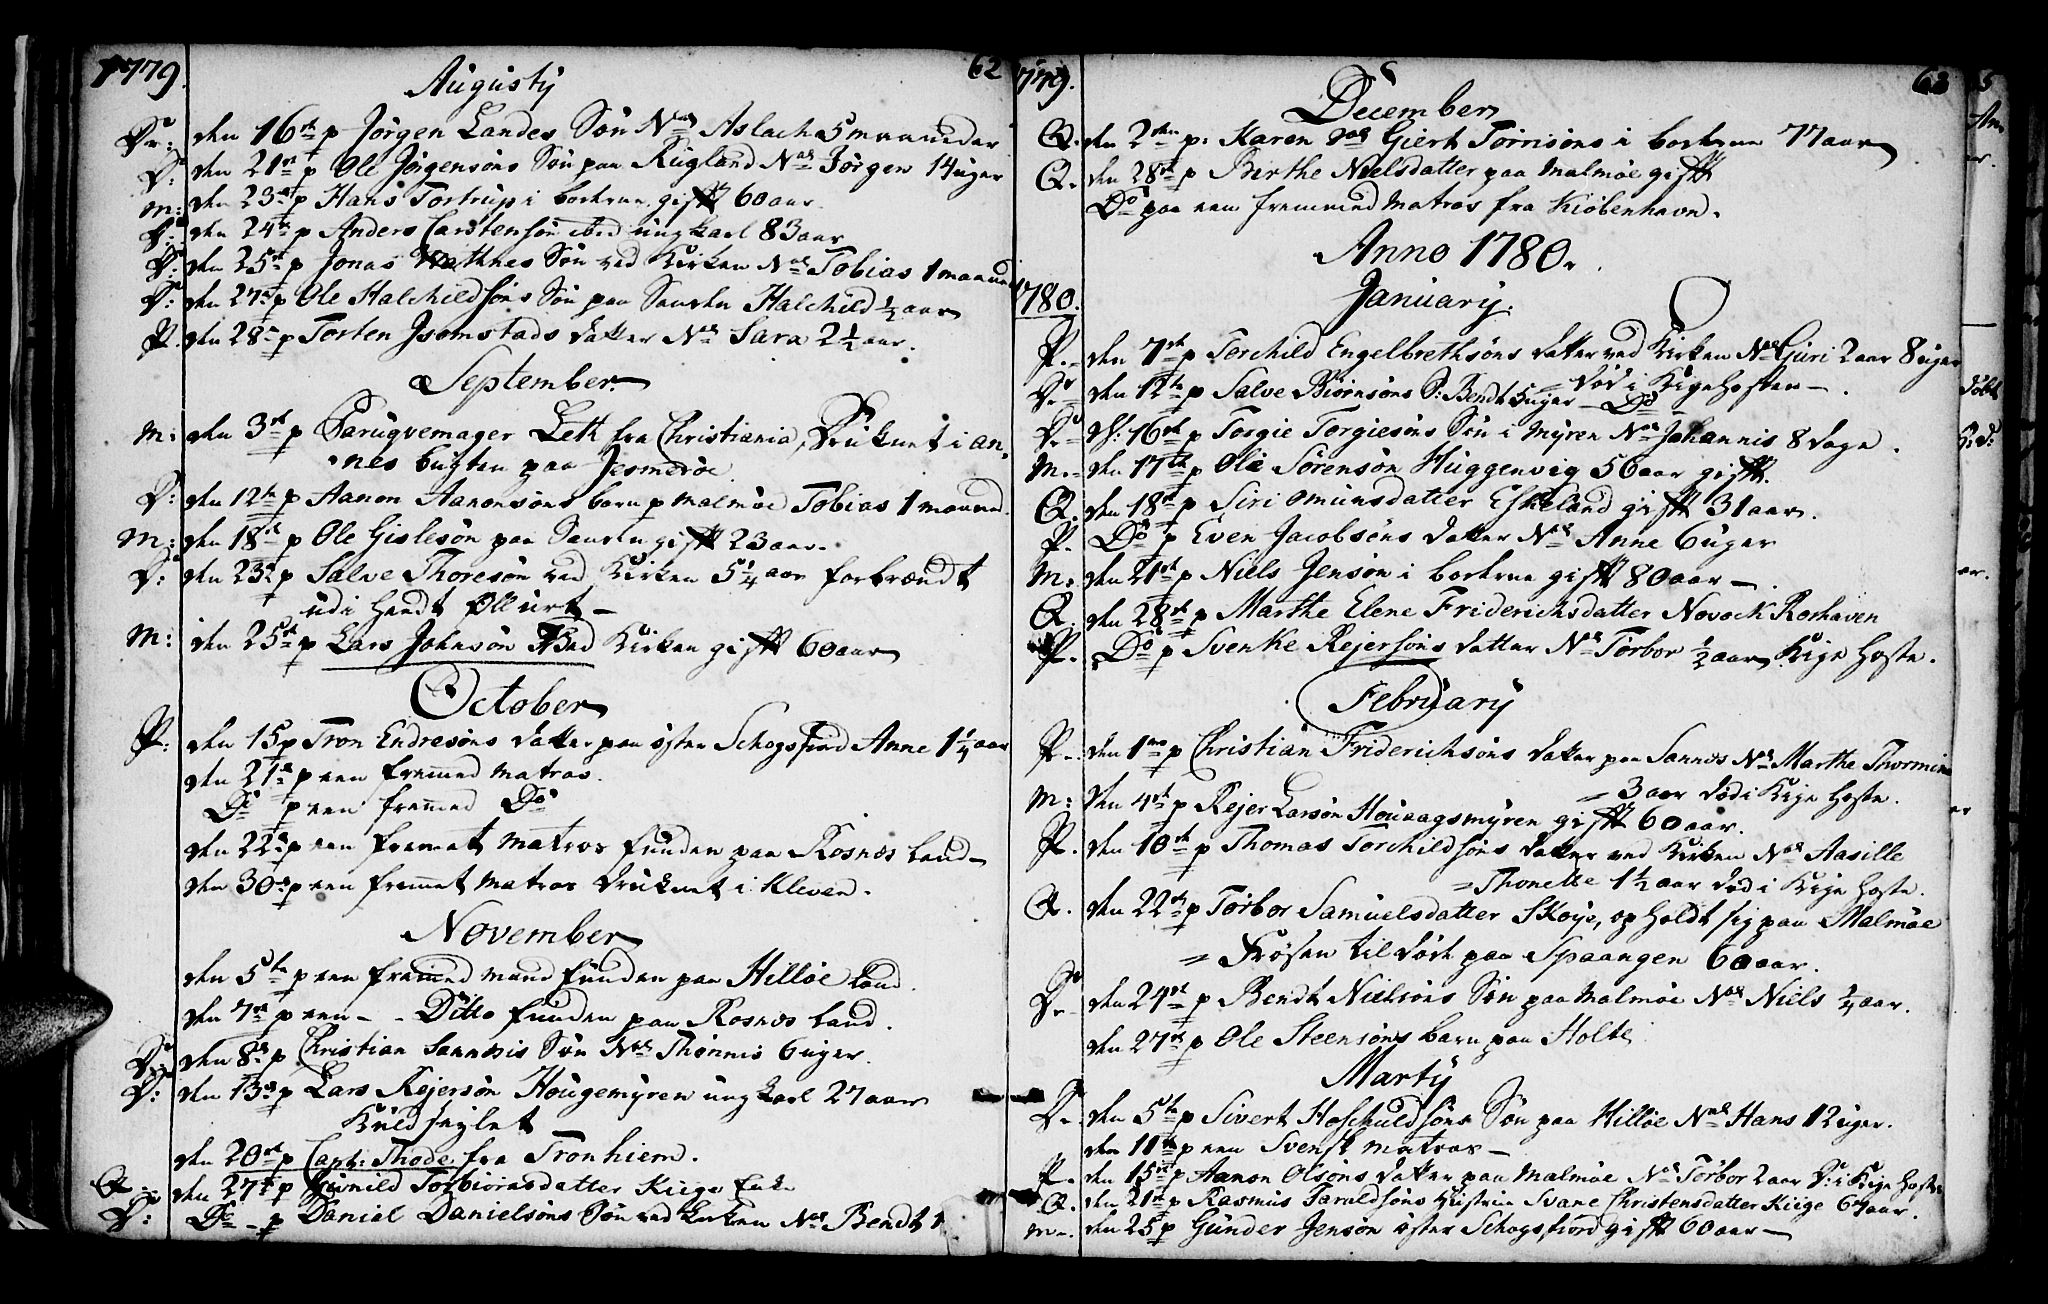 1779.
Augusty
62
Dr: den 16de p Jörgen Landes Sön Na Aslach 5 maaneder
D: den 21de p Ole Jörgensöns Sön paa Rügland Na Jörgen 14 uger
M: den 23de p Hans Tortrup i gift 60 aar.
D: den 24de p Anders Carstensön ibid ung karl 83 aar
D: den 25de p Jonas Watknes Sön ved Kirken Na Tobias 1 maaned
D: den 27de p Ole Halchildsöns Sön paa Halchild ½ aar
P. den 28de p Torten Isomstads datter Na Sara 2½ aar.
September.
M: den 3de p Parugvemager Leth fra Christiania, Druknet i an,
nes bugten paa Jesmeröe
D: den 12te p Aanon Aanonsöns barn p Malmöe Tobias 1 maaned.
M: den 18de p Ole Gislesön paa gift 23 aar.
D: den 23de p Salve Thoresön ved Kirken 5¼ aar forbrændt
udi heedt Öll urt
M: den 25de p Lars Johnsön Ved Kirken gift 60 aar
October
P: den 15 p Tron Endresöns datter paa öster Schogsfiord Anne 1¼ aar
den 21de p een fremed matros.
Do p een fremed Do
den 22de p een fremet matros funden paa Rosnes land
den 30de p een fremet matros druknet i Kleven.
November
den 5te p een fremed mand funden paa Hillöe land.
den 7de p een - - Ditto funden paa Rosnes land.
Dr: den 8de p Christian Sannesis Sön Na Thönnis 6 uger.
D: den 13de p Lars Rejersön Hougemyren ung karl 27 aar
Kuldsejlet
den 20de p Capt: Thode fra Tronhiem.
Q den 27de p Gunild Torbiörnsdatter Kiige Enke
D: Do p Daniel Danielsöns Sön ved Kirken Na Bendt 1
1779.
63
December
Q. den 2den p. Karen Na Giert Törrisöns i 77 aar
Q. den 28de p Birthe Nielsdatter paa Malmöe gift
Do paa een fremmed Matros fra Kiöbenhavn.
Anno 1780.
1780.
January.
P. den 7de p Torchild Engelbrethsöns datter ved Kirken Na Guri 2 aar 8 uger
= död i Kigehosten
Dr den 12te p Salve Biörnsöns S: Bendt 5 uger Do
Dr d: 16de p Torgie Torgiesöns Sön i Myren Na Johannis 8 dage.
M. den 17de p Ole Sörensön Huggenvig 56 aar gift.
Q. den 18de p Siri Omunsdatter Eskeland gift 31 aar.
P. Do p Even Jacobsöns datter Na Anne 6 uger
M. den 21de p Niels Jensön i gift 80 aar
Q. den 28de p Marthe Elene Friderichsdatter Novock Roshaven
P. Do p Svenke Rejersöns datter Na Torbor ½ aar Kige hoste.
February
P. den 1mo p Christian Friderichsöns datter paa Sannes Na Marthe Thormine
= 3 aar död i Kige hoste.
M: den 4de p Rejer Larsön Houaagsmyren gift 60 aar.
P. den 10de p Thomas Torchildsöns datter ved Kirken Na Aasille
= Thonette 1½ aar död i Kige hoste.
Q. den 22de p Torbor Samuelsdatter Skoye, opholdt sig paa Malmöe
= Frosen til död paa Spaangen 60 aar.
Dr den 24de p Bendt Nielsöns Sön paa Malmöe Na Niels ¼ aar.
den 27de p Ole Steensöns barn paa Holte
Marty
D. den 5te p Sivert Hoschuldsöns Sön paa Hillöe Na Hans 12 uger.
den 11te p een Svensk matros
P. den 15de p Aanon Olsöns datter paa Malmöe Na Torbor 2 aar D: i Kige hoste
Q. den 21de p Rasmus Taraldsöns Hustrue Svane Christensdatter Kiige 67 aar.
M. den 25 p Gunder Jensön öster Schogsfiord gift 60 aar